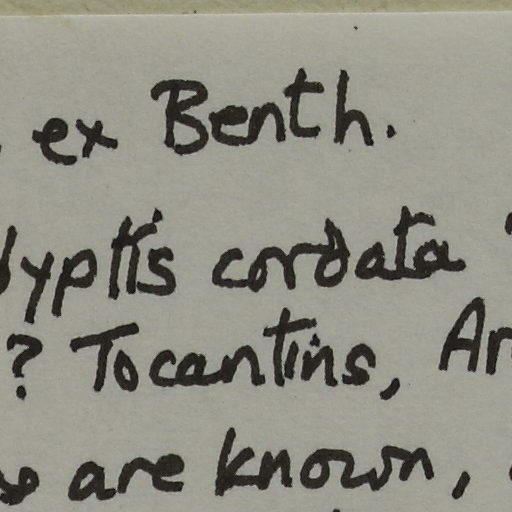 ex Benth.
yptis cordata
? Tocantins, Ar
are known,